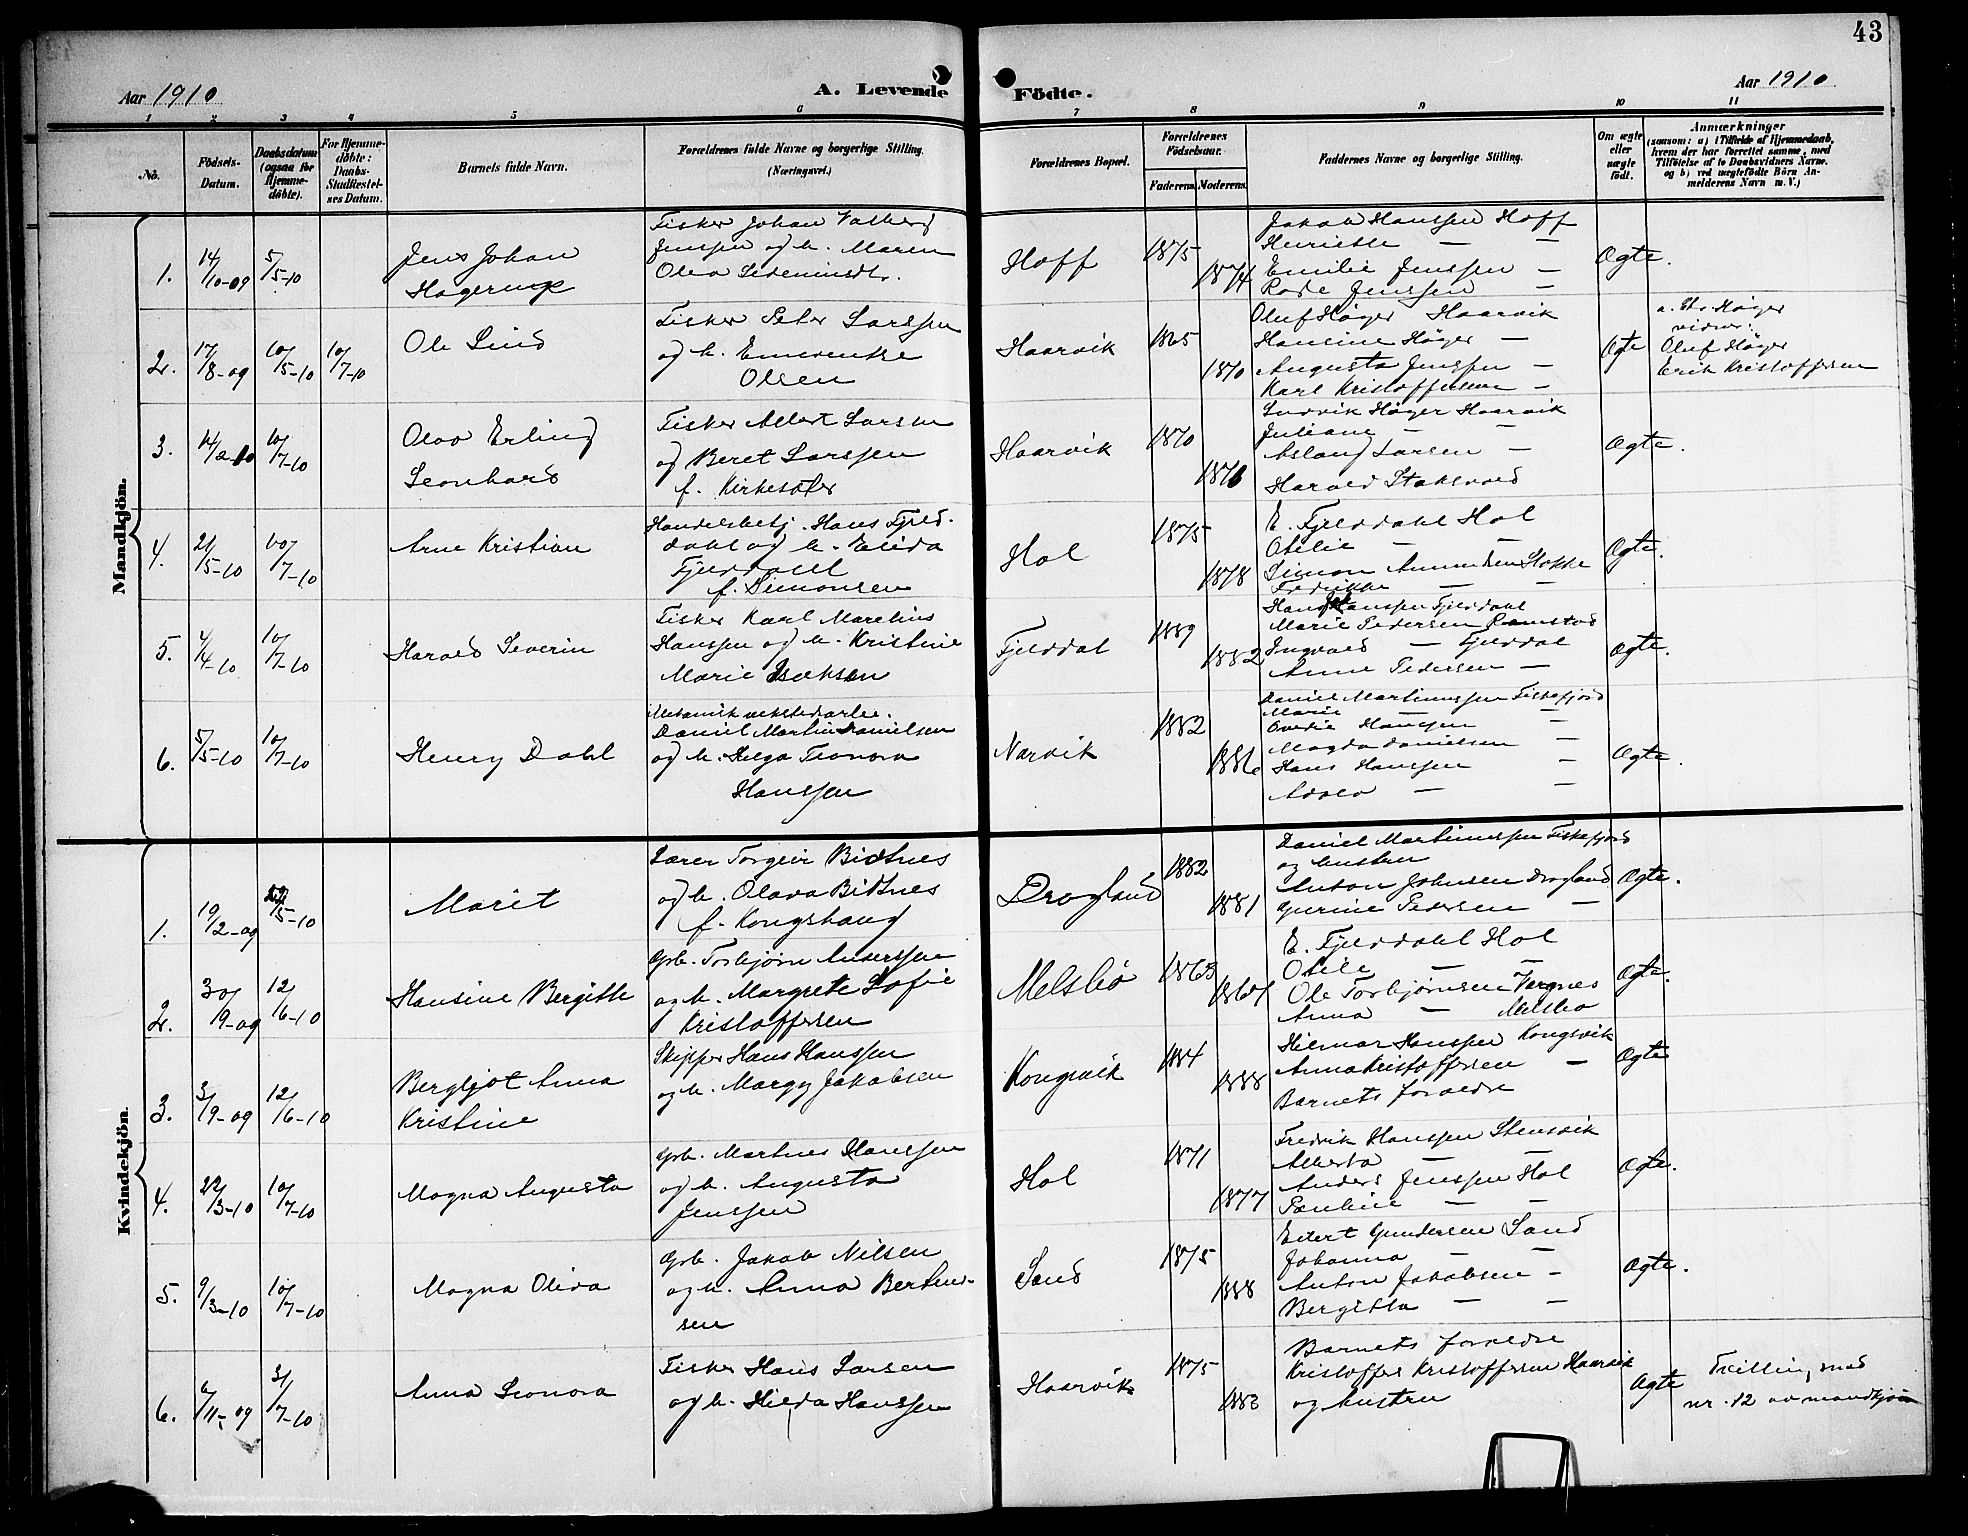 43
Aar 1910
A. Levende
Födte.
Aar 1910
1 2 3 4 5 6 7 8 9 10 11
No.
Födsels-
Datum.
Daabsdatum
(ogsaa for
Hjemme-
döbte).
For Hjemme-
döbte:
Daabs-
Stadfæstel-
ses Datum.
Barnets fulde Navn.
Forældrenes fulde Navne og borgerlige Stilling.
(Næringsvei.)
Forældrenes Bopæl.
Forældrenes
Födselsaar.
Faderens. Moderens.
Faddernes Navne og borgerlige Stilling.
Om ægte
eller
uægte
født.
Anmærkninger
(saasom: a) i Tilfælde af Hjemmedaab,
hvem der har forrettet samme, med
Tilföielse af to Daabsvidners Navne.
og b) ved uægtefödte Börn An-
melderens Navn m. V.)
Mandkjön.
1.
14/10-09
5/5-10
Jens Johan
Hagerup
Fisker Johan
Jenssen og h. Maren
Olea
Hoff
1875
1874
Jakob Hanssen Hoff
Henriette — —
Emilie Jenssen —
Jenssen —
Ægte.
2.
17/8-09
10/5-10
10/7-10
Ole Lind
Fisker Peter Larssen
og h. Emerentse
Olsen
Haarvik
1865
1870
Oluf Høger Haarvik
Hansine Høger —
Augusta Jenssen —
Karl Kristoffersen —
Ægte
Høger
vidner:
Oluf Høger
Erik Kristoffersen
3.
14/2-10
10/7-10
Olav Erling
Leonhard
Fisker Albert Larsen
og Beret Larssen
f. Kirkesæter
Haarvik
1870
1876
Ludvik Høger Haarvik
Juliane — —
Aslaug Larsen —
Harald
Ægte.
4.
21/5-10
10/7-10
Arne Kristian
Handelsbetj. Hans Fjeld-
dahl og h. Elida
Fjelddahl
f. Simonsen
Hol
1875
1878
E. Fjelddahl Hol
Otelie — —
Simon Amundsen Stokke
Fredrikke — —
Ægte.
5.
4/4-10
10/7-10
Harald Severin
Fisker Karl Marelius
Hanssen og h. Kristine
Marie Isaksen
Fjelddal
1889
1882
Hans Hanssen Fjelddal
Marie Pedersen Ramstad
Ingvald — Fjelddal
Anne Pedersen —
Ægte.
6.
5/5-10
10/7-10
Henry Dahl
Mekanisk verkstedsarbe.
Daniel Martin Danielsen
og h. Helga Leonora
Hanssen
Narvik
1882
1886
Daniel Martinussen Fiskefjord
Marie — —
Hanssen —
Magda Danielsen —
Hans Hanssen —
— —
Ægte.
Kvindekjön.
1.
19/2-09
/5-10
Marit
Lærer Torgeir Bidtnes
og h. Olava Bidtnes
f. Kongshaug
Dragland
1882
1881
Daniel Martinussen Fiskefjord
og hustru
Anton Johnsen Dragland
Gurine Pedersen —
Ægte.
2.
30/9-09
12/6-10
Hansine Bergitte
Grb. Torbjørn Anderssen
og h. Margrete Sofie
Kristoffersen
Melsbø
1863
E. Fjelddahl Hol
Otelie — —
Ole Torbjørnsen Vargnes
Anna — Melsbø
Ægte.
3.
3/9-09
12/6-10
Bergljot Anna
Kristine
Skipper Hans Hanssen
og h. Margy Jakobsen
Kongsvik
1884
1888
Hilmar Hanssen Kongsvik
Anna Kristoffersen —
Barnets forældre
Ægte
4.
22/3-10
10/7-10
Magna Augusta
Grb. Martines Hanssen
og h. Augusta
Jenssen
Hol
1871
1877
Fredrik Hanssen Stensvik
Alberta — —
Anders Jenssen Hol
Pauline — —
Ægte.
5.
9/3-10
10/7-10
Magna Olida
Grb. Jakob Nilsen
og h. Anna Bertin-
sen
Sand
1875
1888
Edert Gundersen Sand
Johanna — —
Anton Jakobsen —
Bergitta — —
Ægte.
6.
6/11-09
31/7-10
Anna Leonora
Fisker Hans Larsen
og h. Hilda Hanssen
Haarvik
1875
1883
Barnets forældre
Kristoffer Kristoffersen Haarvik
og hustru
Ægte
Tvilling, med
nr. 12 av mandkjøn